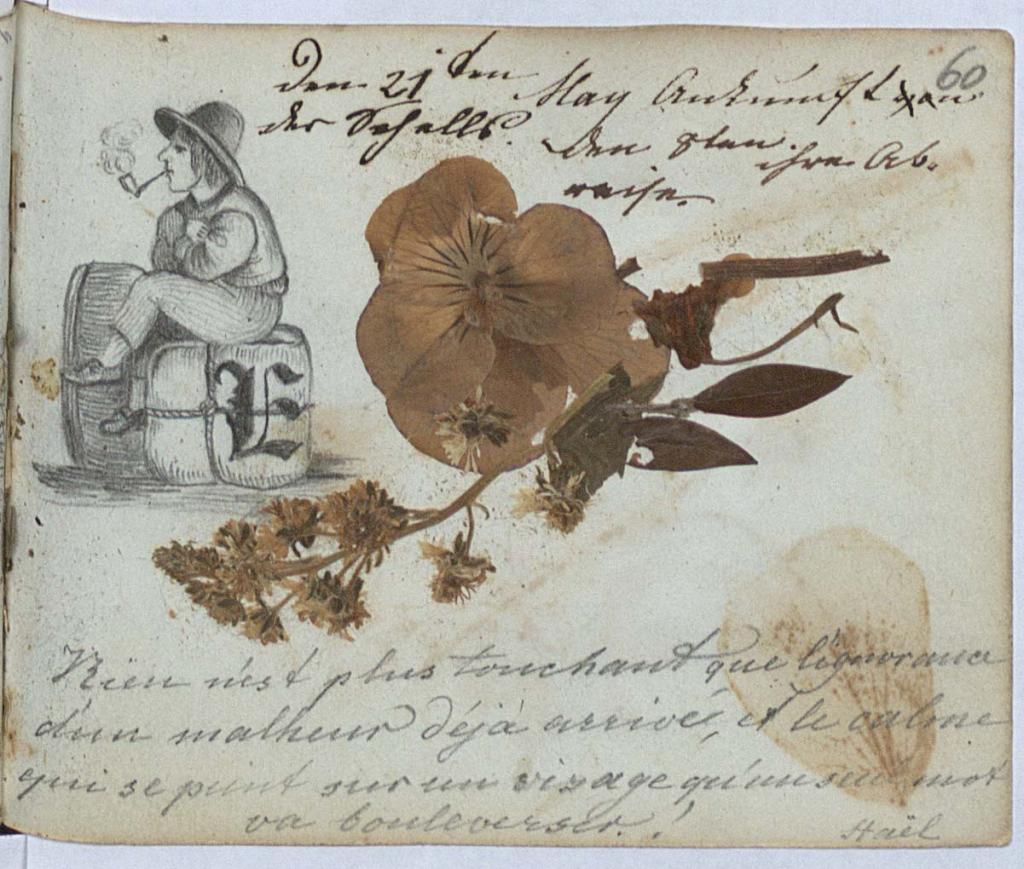 60
Den 21ten May Ankunft von
der Schells. Den 8ten ihre Ab-
reise.
E
Rien n'est plus touchant que l'ignorance
d'un malheur déjà arrivé, et le calme
qui se peint sur un visage qu'un seul mot
va bouleverser!
Staël